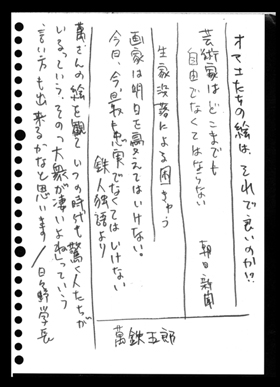 オマエたちの絵は、それで良いのか!?
芸術家はどこまでも
自由でなくてはならない
朝日新聞
生家没落による困きゅう
画家は明日を考えてはいけない。
今日、今、最も忠実でなくてはいけない
鉄人独語より
萬さんの絵を観て いつの時代も驚く人たちが
いるっていう、そのっ大衆が凄いよねっていう
言い方も出来るかなと思います/日野学長
萬鉄五郎